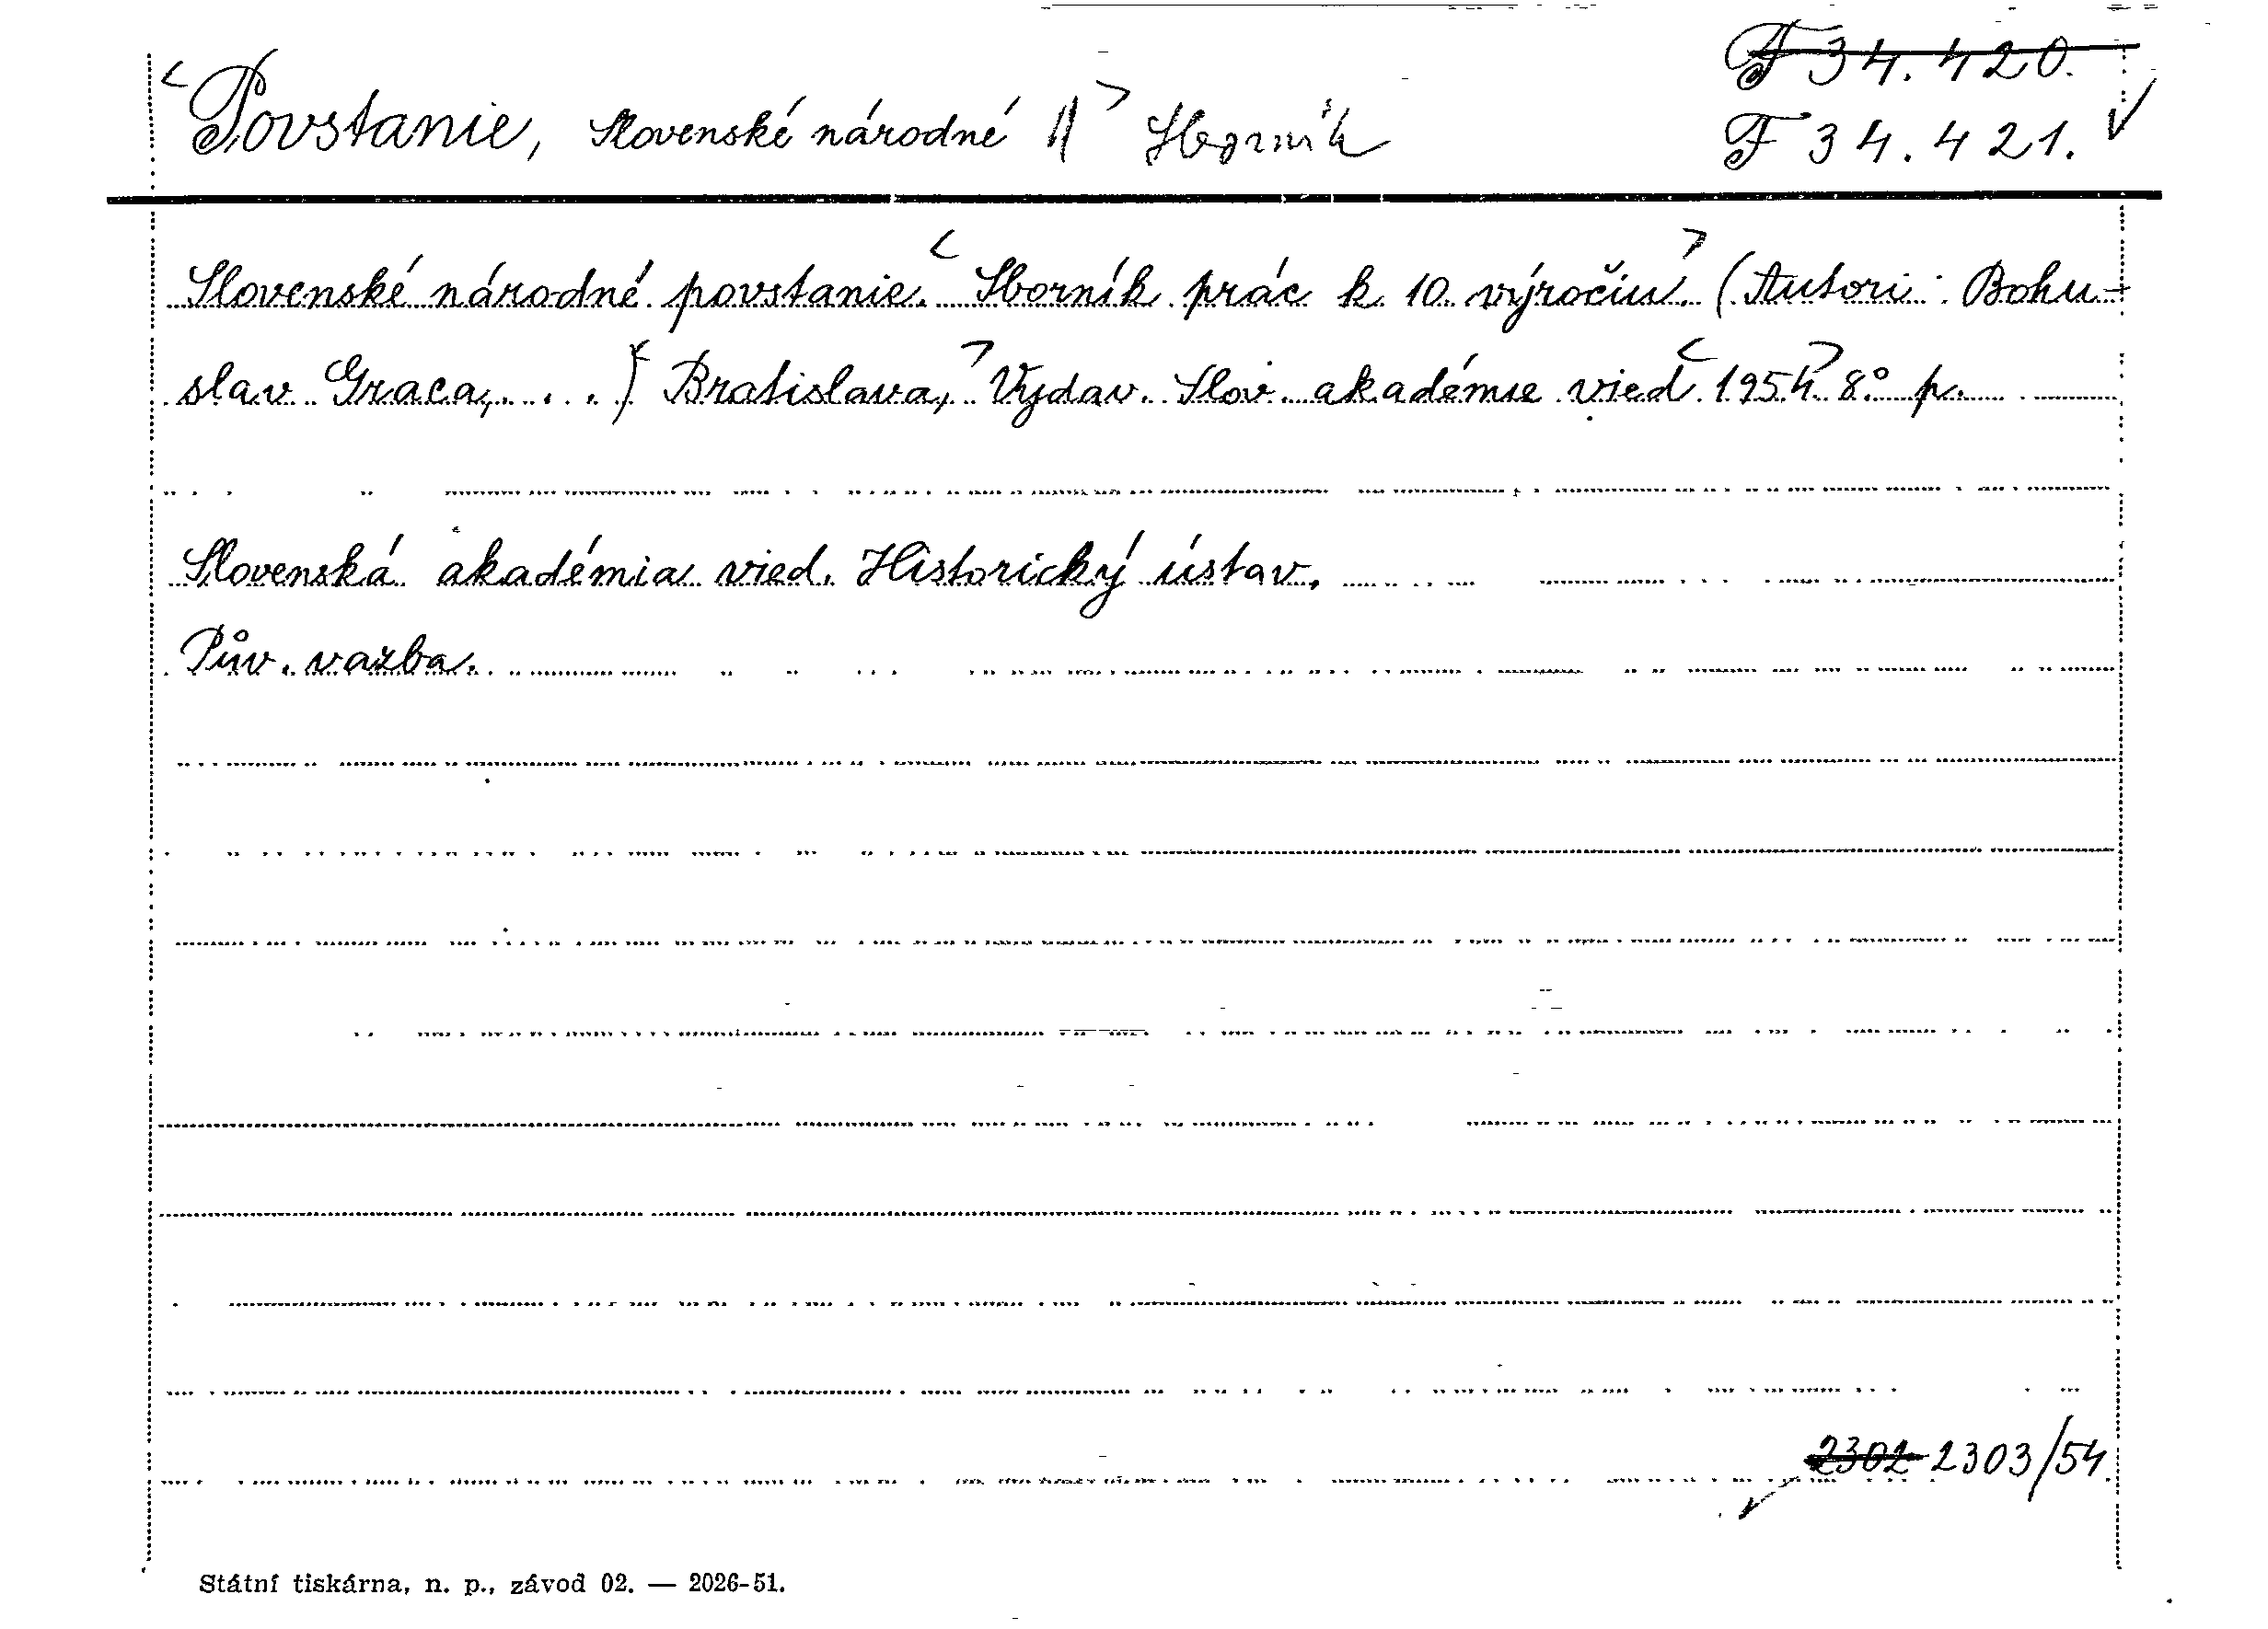 F 34.420.
<Povstanie, Slovenské národné //> Sborník
F 34.421. ✓
Slovenské národné povstanie. <Sborník prác k 10. výročiu.> (Autori: Bohu-
slav Graca, ...) <Bratislava,> Vydav. Slov. akadémie vied <1954> 8° p.
Slovenská akadémia vied. Historický ústav.
Pův. vazba.
2302 2303/54
Státní tiskárna, n. p., závod 02. — 2026-51.